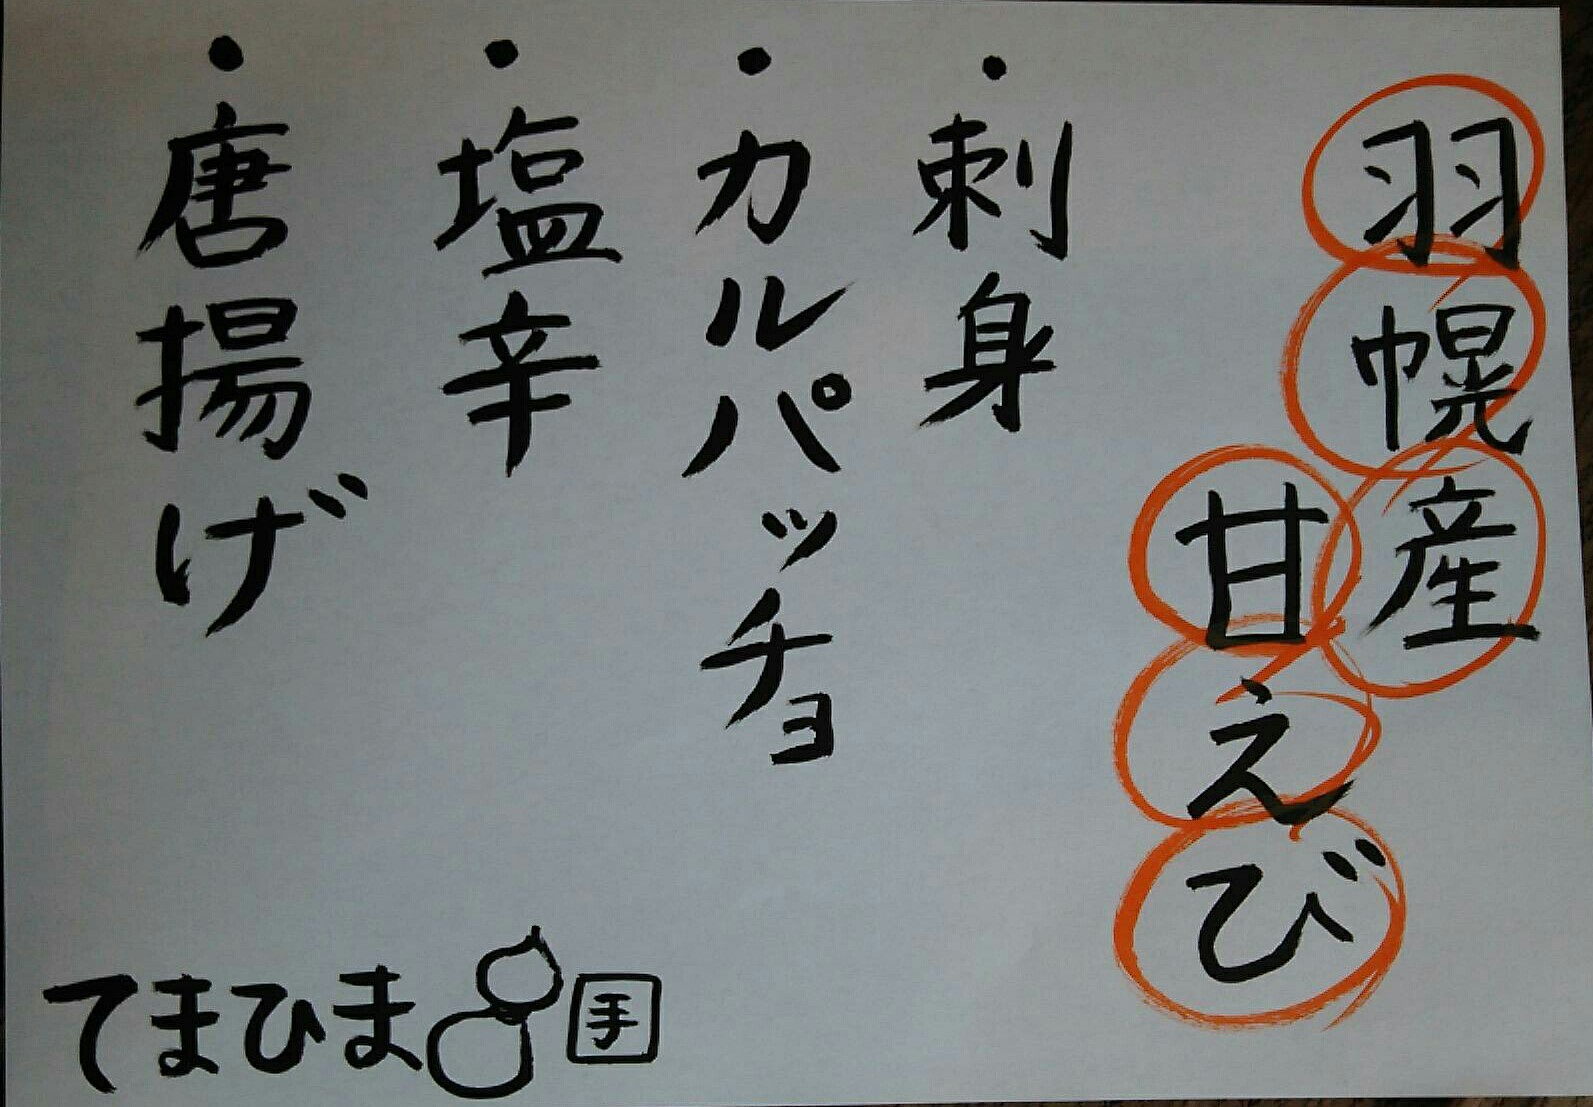 羽幌産
甘えび
・刺身
・カルパッチョ
・塩辛
・唐揚げ
てまひま
手